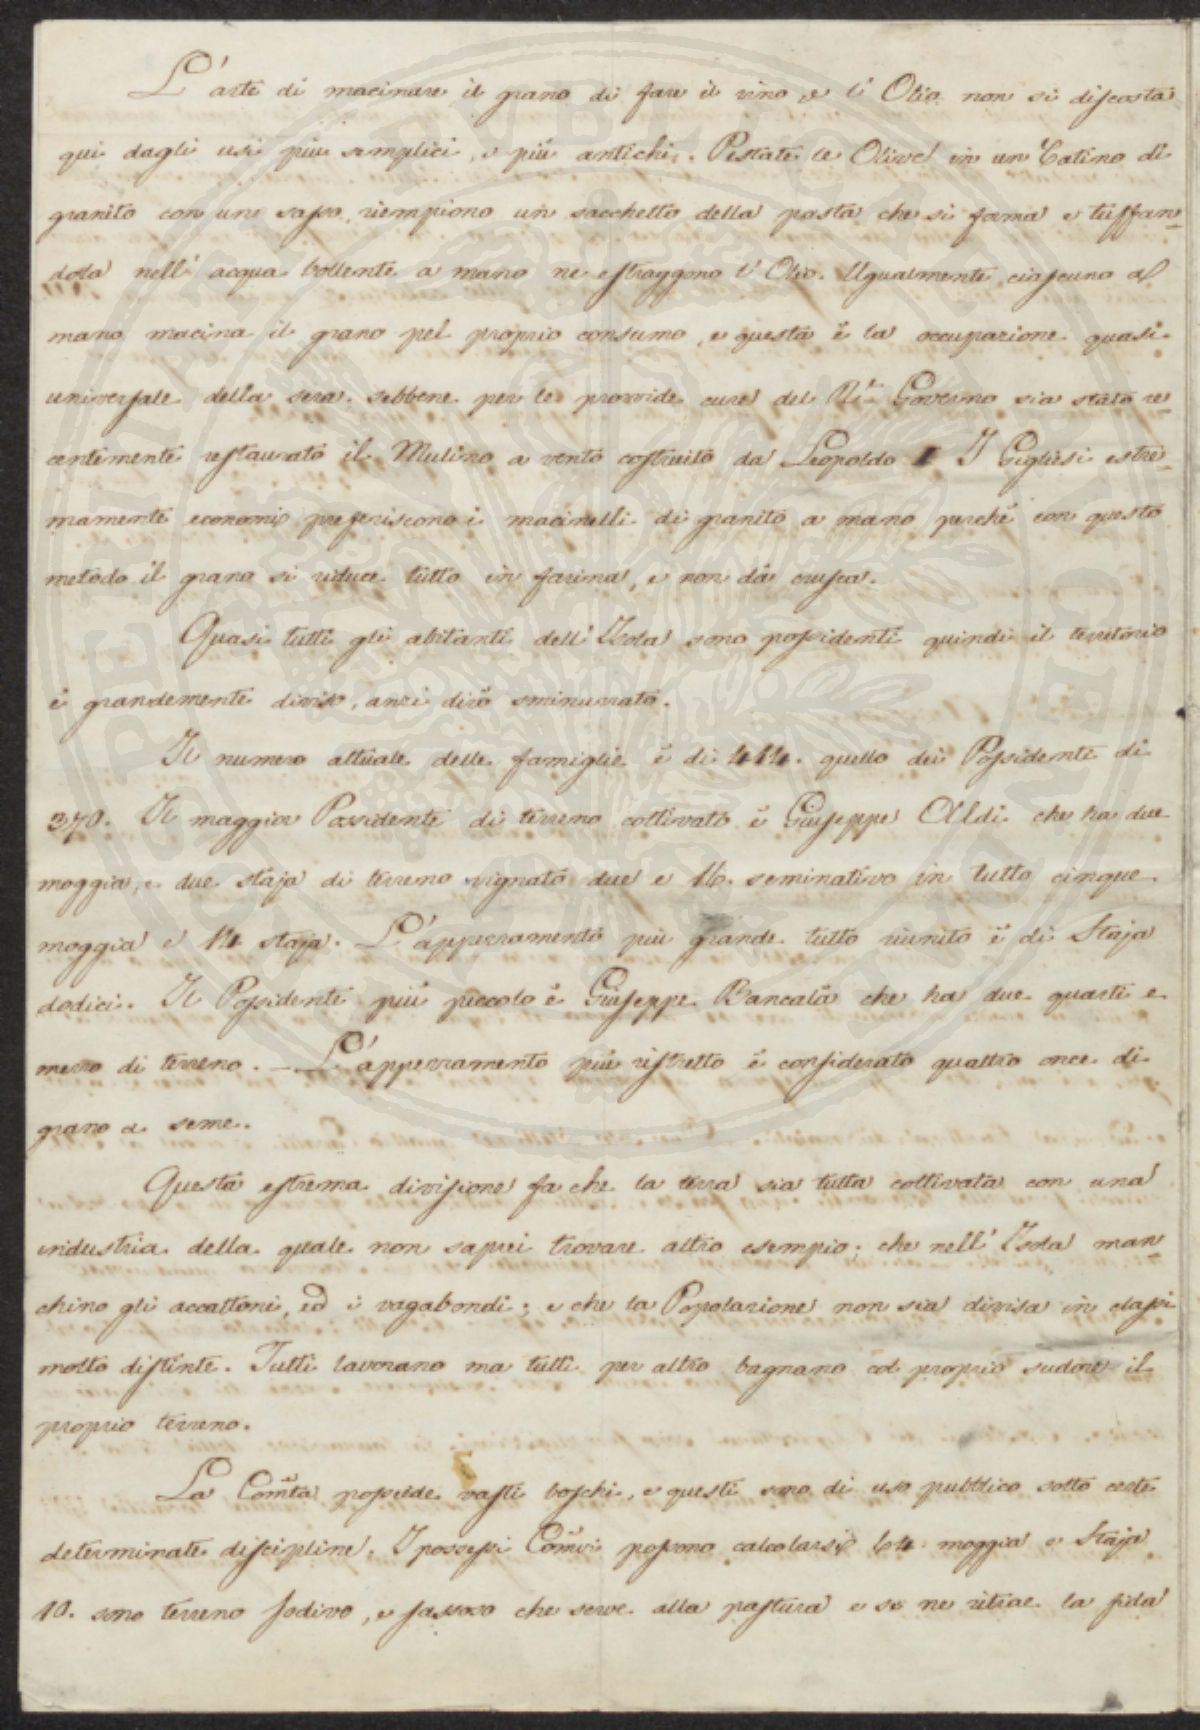 L'arte di macinare il grano di fare il vino, e l'Olio non si discosta
qui dagli usi più semplici, e più antichi. Pestate le Olive in un Catino di
granito con un sasso, riempiono un sacchetto della pasta che si forma e tuffan=
dola nell'acqua bollente a mano ne estraggono l'Olio. Ugualmente ciascuno a
mano macina il grano pel proprio consumo, e questa è la occupazione quasi
universale della sera. sebbene per le provvide cure del Governo sia stato re=
centemente restaurato il Mulino a vento costruito da Leopoldo I I Gigliesi estre=
mamente economi preferiscono i macinelli di granito a mano perchè con questo
metodo il grano si riduce tutto in farina, e non dà crusca.
Quasi tutti gli abitanti dell'Isola sono possidenti quindi il territorio
è grandemente diviso, anzi dirò sminuzzato.
Il numero attuale delle famiglie è di 414. quello dei Possidenti di
370. Il maggior Possidente di terreno coltivato è Giuseppe Aldi che ha due
moggia, e due staja di terreno vignato due e 16. seminativo in tutto cinque
moggia e 14 staja. L'appezzamento più grande tutto riunito è di Staja
dodici. Il Possidente più piccolo è Giuseppe Bancalà che ha due quarti e
mezzo di terreno. — L'appezzamento più ristretto è considerato quattro once di
grano a seme.
Questa estrema divisione fa che la terra sia tutta coltivata con una
industria della quale non saprei trovare altro esempio; che nell'Isola man=
chino gli accattoni, ed i vagabondi; e che la Popolazione non sia divisa in classi
molto distinte. Tutti lavorano ma tutti per altro bagnano col proprio sudore il
proprio terreno.
La Comta possiede vasti boschi, e questi sono di uso pubblico sotto certe
determinate discipline. I possessi Comvi possono calcolarsi 64 moggia e Staja
10. sono terreno sodivo, e sassoso che serve alla pastura e se ne ritrae la fida